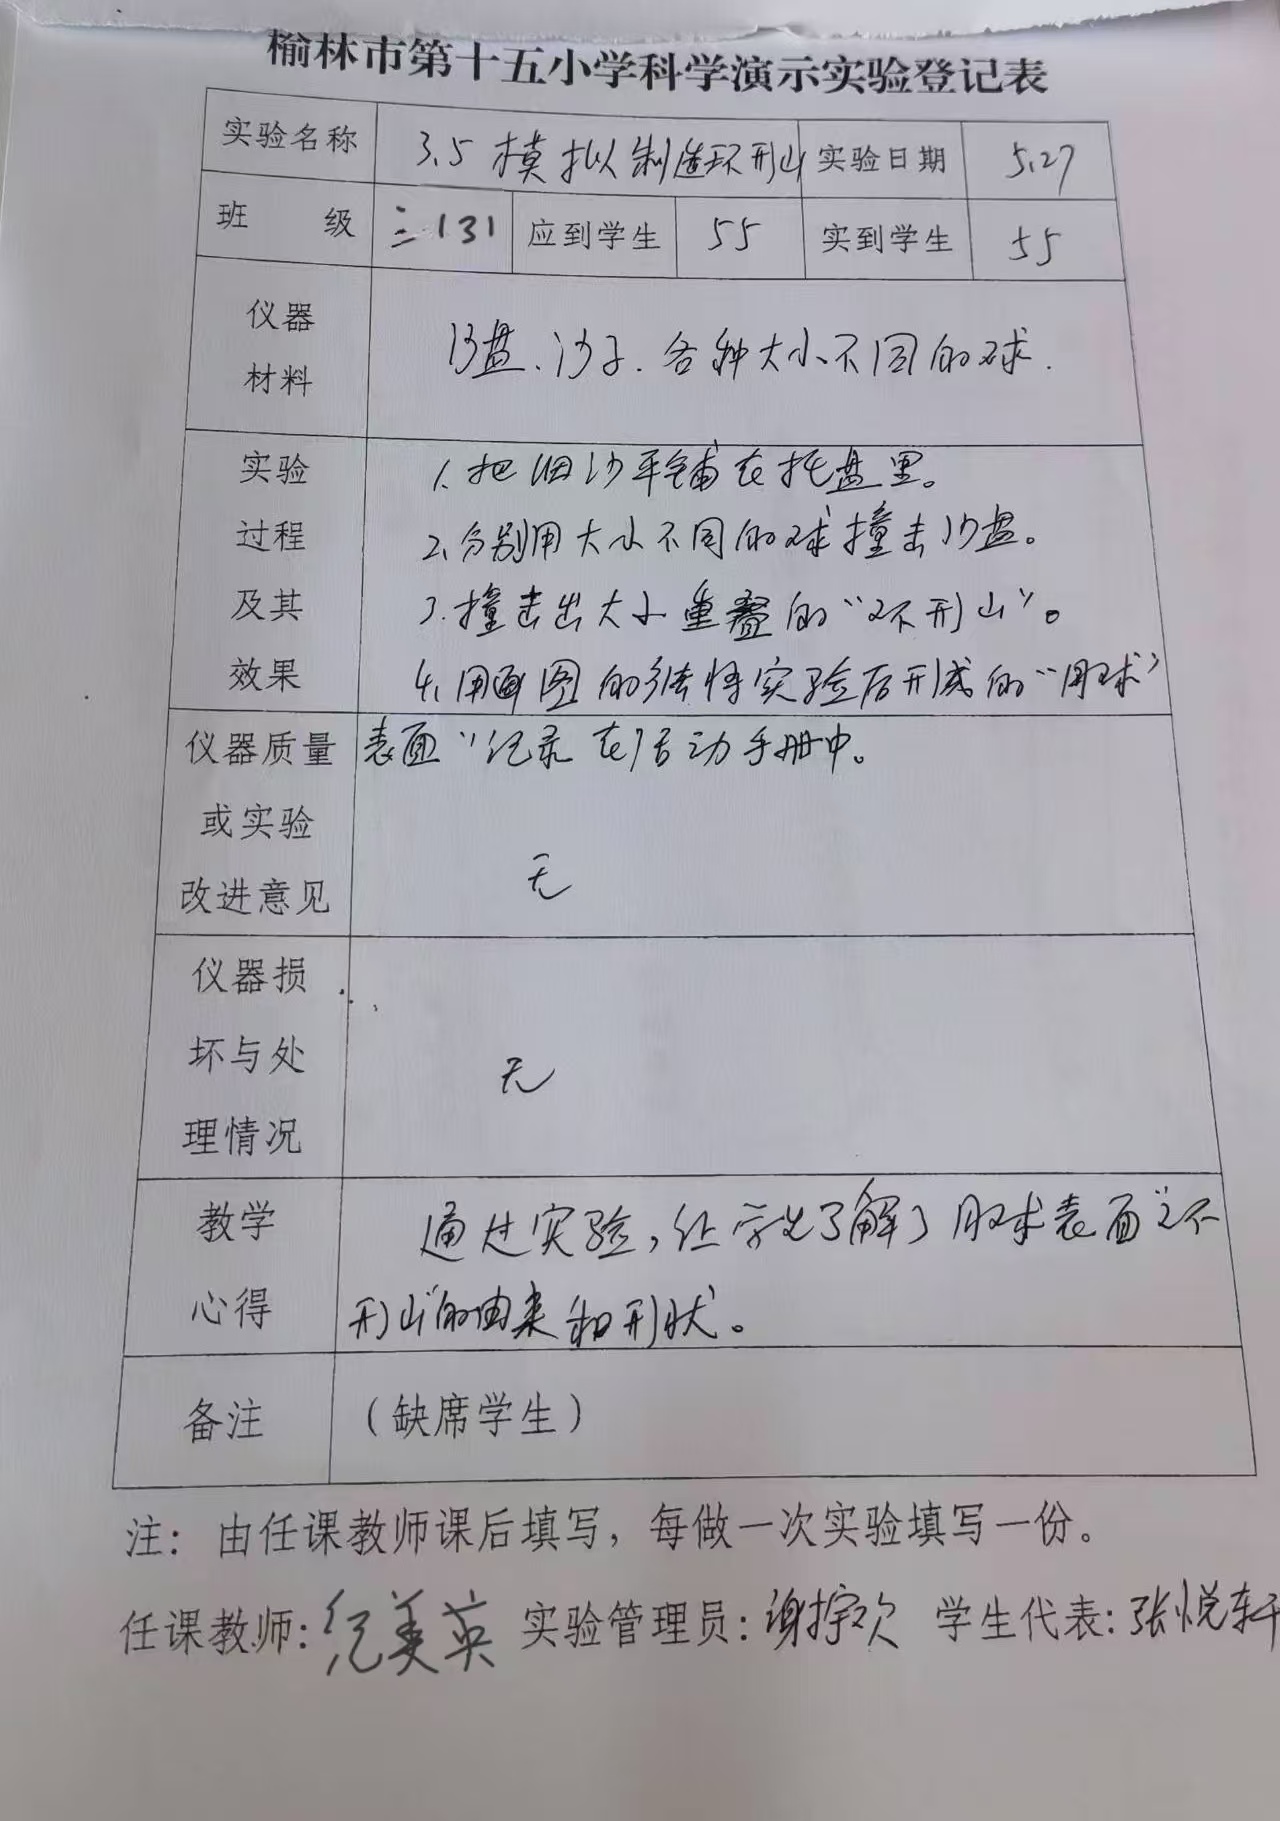 榆林市第十五小学科学演示实验登记表
实验名称 3.5 模拟制造环形山 实验日期 5.27
班 级 三.131 应到学生 55 实到学生 55
仪器
材料
沙盘、沙子、各种大小不同的球.
实验
过程
及其
效果
1、把细沙平铺在托盘里。
2、分别用大小不同的球撞击沙盘。
3、撞击出大小重叠的“环形山”。
4、用画图的方法将实验后形成的“月球
表面”记录在活动手册中。
仪器质量
或实验
改进意见
无
仪器损
坏与处
理情况
无
教学
心得
通过实验，让学生了解了月球表面“环
形山”的由来和形状。
备注 （缺席学生）
注：由任课教师课后填写，每做一次实验填写一份。
任课教师: 纪美英 实验管理员: 谢宇欢 学生代表: 张悦轩